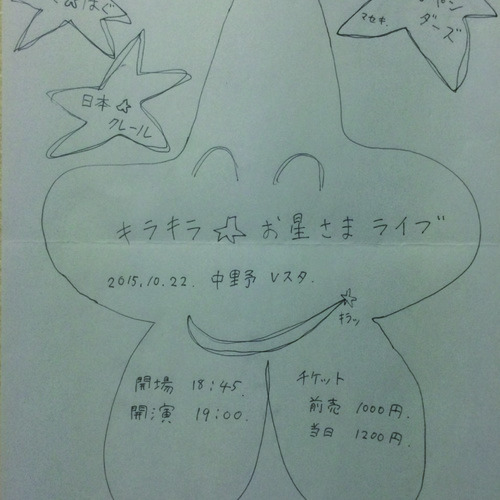 はぐ
マセキ.
ダーズ
日本☆
クレール
キラキラ☆お星さまライブ
2015.10.22. 中野 Vスタ.
キラッ
開場 18:45.
開演 19:00.
チケット
前売 1000円.
当日 1200円.